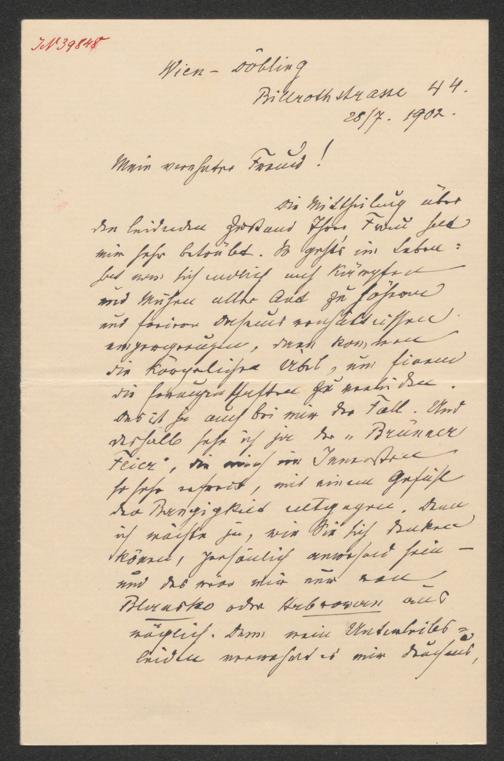 JN 39848
Wien – Döbling
Billrothstrasse 44.
28/7. 1902.
Mein verehrter Freund!
Die Mittheilung über
den leidenden Zustand Ihrer Frau hat
mich sehr betrübt. So geht's im Leben:
hat man sich endlich aus Kämpfen
und Mühen aller Art zu höheren
und freieren Daseinsverhältnissen
emporgerungen, dann kommen
die körperlichen Übel, um einem
die Errungenschaften zu verleiden.
Das ist ja auch bei mir der Fall. Und
deshalb sehe ich ja der „Brünner
Feier", die mich im Innersten
so sehr erfreut, mit einem Gefühl
der Bangigkeit entgegen. Denn
ich möchte ja, wie Sie sich denken
können, persönlich anwesend sein –
und das wäre mir nur von
Blansko oder Habrovan aus
möglich. Denn mein Unterleibs-
leiden verwehrt es mir durchaus,